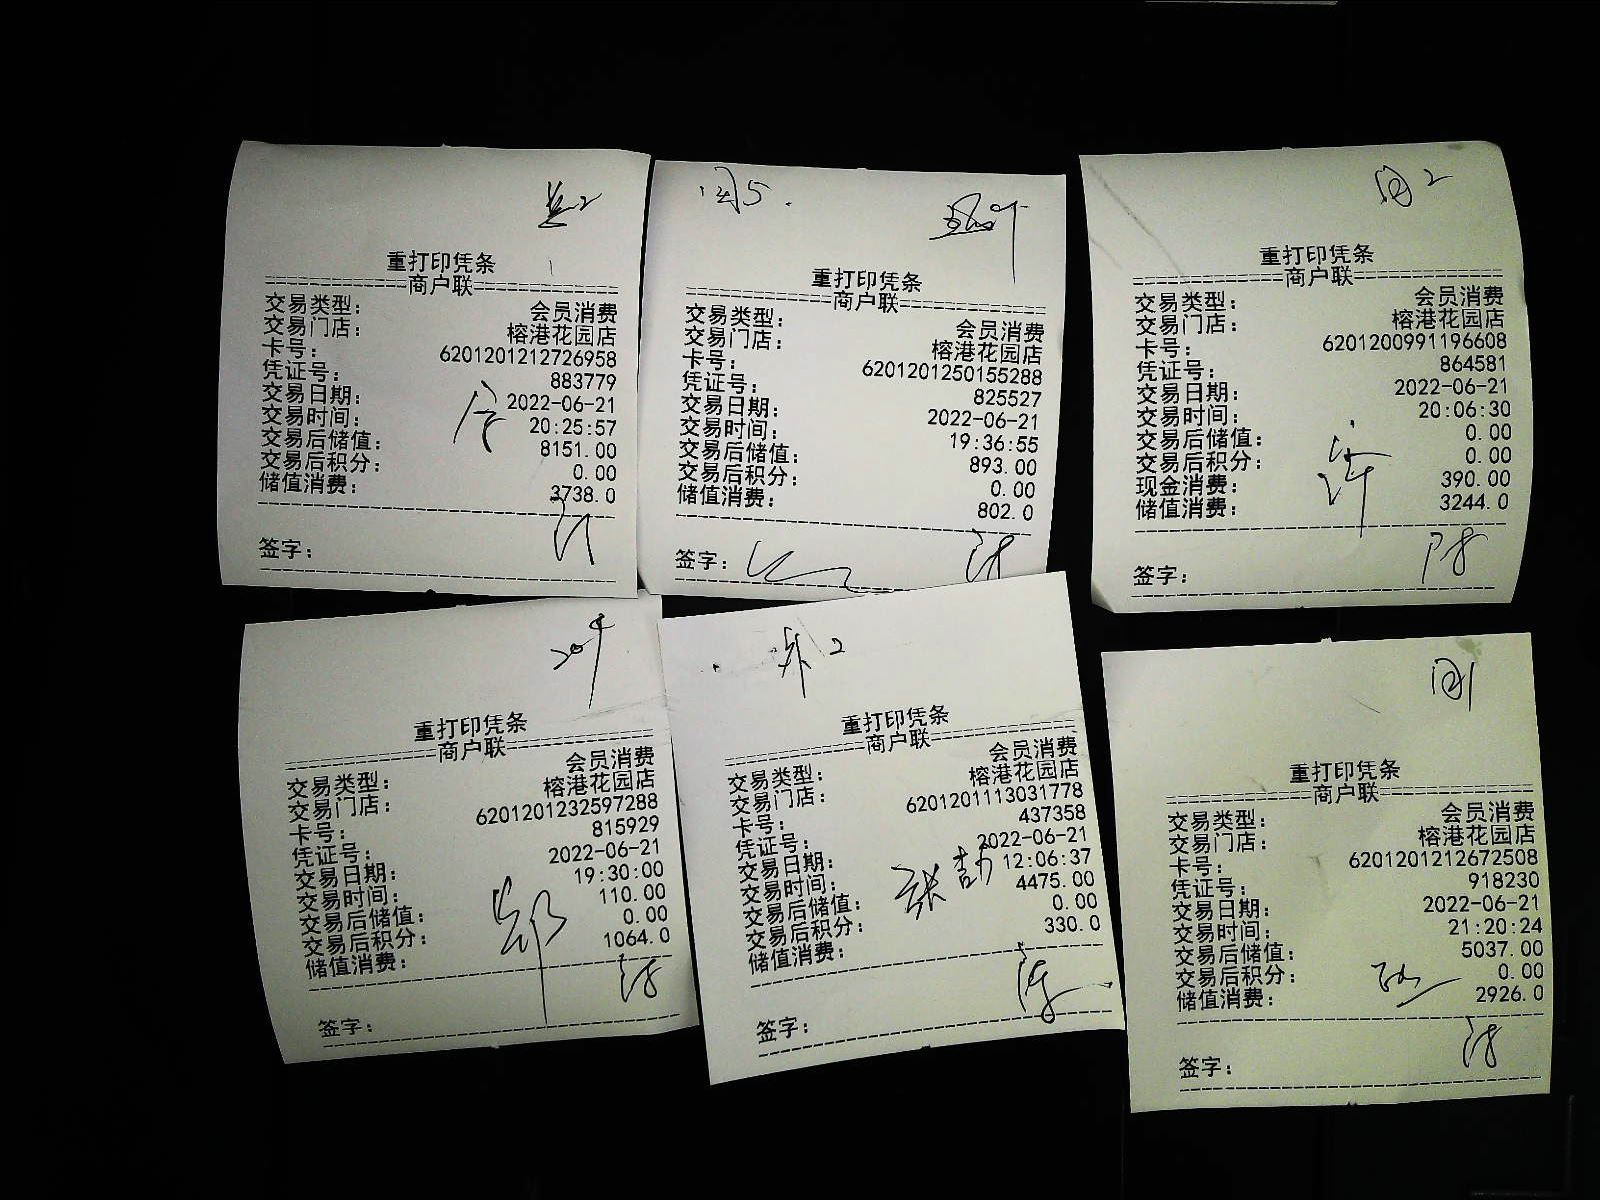 重打印凭条
商户联
交易类型： 会员消费
交易门店： 榕港花园店
卡号： 6201201212726958
凭证号： 883779
交易日期： 2022-06-21
交易时间： 20:25:57
交易后储值： 8151.00
交易后积分： 0.00
储值消费： 3738.0
签字：
闰5.
重打印凭条
商户联
交易类型： 会员消费
交易门店： 榕港花园店
卡号： 6201201250155288
凭证号： 825527
交易日期： 2022-06-21
交易时间： 19:36:55
交易后储值： 893.00
交易后积分： 0.00
储值消费： 802.0
签字：
重打印凭条
商户联
交易类型： 会员消费
交易门店： 榕港花园店
卡号： 6201200991196608
凭证号： 864581
交易日期： 2022-06-21
交易时间： 20:06:30
交易后储值： 0.00
交易后积分： 0.00
现金消费： 390.00
储值消费： 3244.0
签字：
重打印凭条
商户联
交易类型： 会员消费
交易门店： 榕港花园店
卡号： 6201201232597288
凭证号： 815929
交易日期： 2022-06-21
交易时间： 19:30:00
交易后储值： 110.00
交易后积分： 0.00
储值消费： 1064.0
郑
签字：
重打印凭条
商户联
交易类型： 会员消费
交易门店： 榕港花园店
卡号： 6201201113031778
凭证号： 437358
交易日期： 2022-06-21
交易时间： 12:06:37
交易后储值： 4475.00
交易后积分： 0.00
储值消费： 330.0
签字：
重打印凭条
商户联
交易类型： 会员消费
交易门店： 榕港花园店
卡号： 6201201212672508
凭证号： 918230
交易日期： 2022-06-21
交易时间： 21:20:24
交易后储值： 5037.00
交易后积分： 0.00
储值消费： 2926.0
签字：